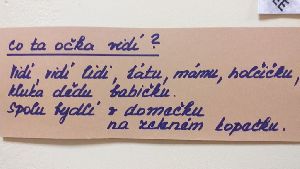 Co ta očka vidí?
Vidí, vidí lidi, tátu, mámu, holčičku,
kluka dědu babičku.
Spolu bydlí v domečku
na zeleném kopečku.